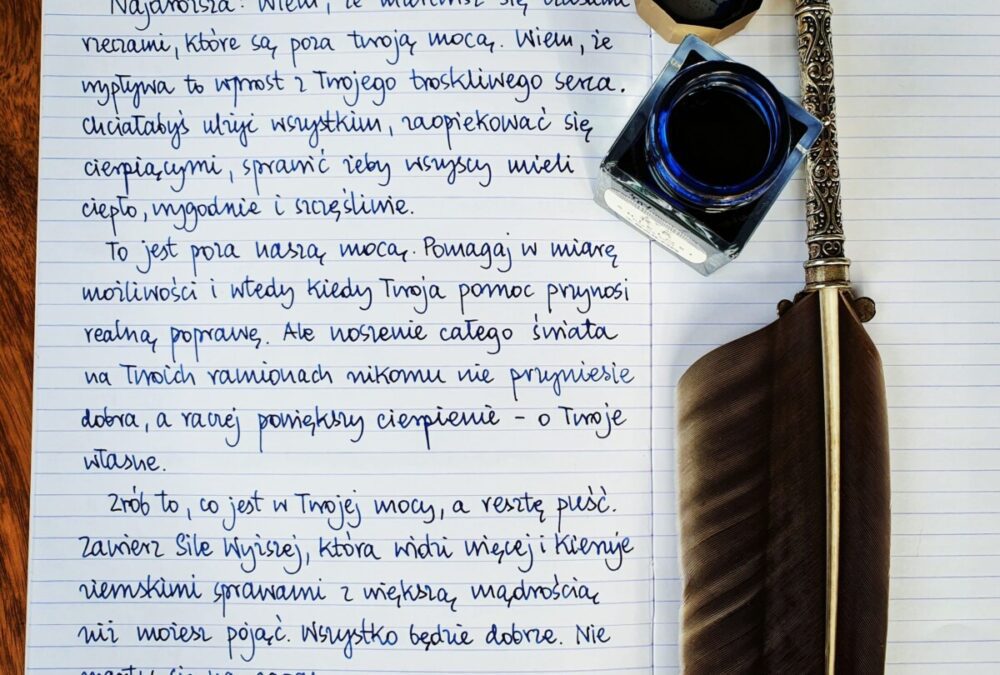 Najdroższa! Wiem, że martwisz się czasami
rzeczami, które są poza twoją mocą. Wiem, że
wypływa to wprost z Twojego troskliwego serca.
Chciałabyś ulżyć wszystkim, zaopiekować się
cierpiącymi, sprawić żeby wszyscy mieli
ciepło, wygodnie i szczęśliwie.
To jest poza naszą mocą. Pomagaj w miarę
możliwości i wtedy kiedy Twoja pomoc przynosi
realną poprawę. Ale noszenie całego świata
na Twoich ramionach nikomu nie przyniesie
dobra, a raczej powiększy cierpienie - o Twoje
własne.
Zrób to, co jest w Twojej mocy, a resztę puść.
Zawierz Sile Wyższej, która widzi więcej i kieruje
ziemskimi sprawami z większą mądrością
niż możesz pojąć. Wszystko będzie dobrze. Nie